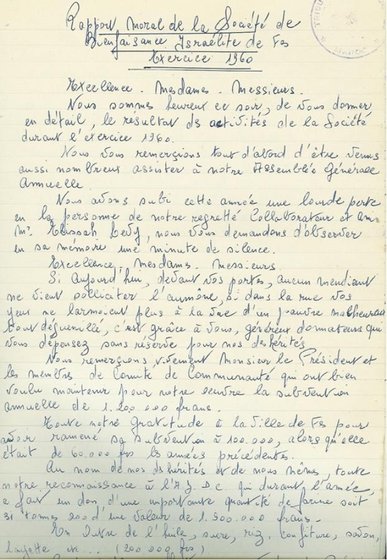 Rapport moral de la Société de
Bienfaisance Israélite de Fes
Exercice 1960
Excellence. Mesdames. Messieurs.
Nous sommes heureux ce soir, de vous donner
en détail, le résultat des activités de la Société
durant l'éxercice 1960.
Nous vous remerçions tout d'abord d'être venus
aussi nombreux assister à notre Assemblée Générale
Annuelle.
Nous avons subi cette année une lourde perte
en la personne de notre regretté Collaborateur et ami
Mr. Elissah Levy, nous vous demandons d'observer
en sa mémoire une minute de silence.
Excellence, Mesdames. Messieurs.
Si aujourd'hui, devant vos portes, aucun mendiant
ne vient solliciter l'aumône, si dans la rue vos
yeux ne larmoient plus à la vue d'un pauvre malheureux
tout déguenillé, c'est grâce à vous, généreux donateurs qui
vous dépensez sans réserve pour nos déshérités
Nous remerçions vivement Monsieur le Président et
les membres de Comité de Communauté qui ont bien
voulu maintenir pour notre oeuvre la subvention
annuelle de 1.200.000 frans.
Toute notre gratitude à la ville de Fes pour
avoir ramené sa subvention à 100.000, alors qu'elle
était de 60.000 frs les années précédentes.
Au nom de nos déshérités et de nous mêmes, toute
notre reconnaissance à l'A J D C qui durant l'année,
a fait un don d'une importante quantité de farine soit
31 tonnes 200 d'une valeur de 1.900.000 frans.
En outre de l'huile, sucre, riz, confiture, savon,
layette (200.000 frs)